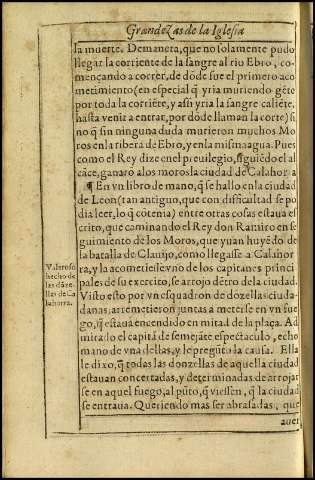 Grandezas de la Iglesia
sa muerte. Demanera, que no solamente pudo
llegar la corriente de la sangre al rio Ebro, co-
mençando a correr, de dõde fue el primero aco
metimiento (en especial q̃ yria muriendo gẽte
por toda la corriẽte, y assi yria la sangre caliẽte,
hasta venir a entrar, por dõde llaman la corte) si
no q̃ sin ninguna duda murieron muchos Mo
ros en la ribera de Ebro, y en la misma agua. Pues
como el Rey dize en el preuilegio, siguiẽdo el al
cãce, ganarõ a los moros la ciudad de Calahor a
¶ En vn libro de mano, q̃ se hallo en la ciudad
de Leon (tan antiguo, que con difficultad se po
dia leer, lo q̃ cõtenia) entre otras cosas estaua es
crito, que caminando el Rey don Ramiro en se
guimiento de los Moros, que yuan huyẽdo de
la batalla de Clauijo, como llegasse a Calahor
ra, y la acometiesse vno de los capitanes princi
pales de su exercito, se arrojo dẽtro de la ciudad.
Visto esto por vn esquadron de dozellas ciuda-
danas, arremetieron juntas a meterse en vn fue
go, q̃ estaua encendido en mitad de la plaça. Ad
mirado el capitã de semejãte espectaculo, echo
mano de vna dellas, y le pregũto la causa. Ella
le dixo, q̃ todas las donzellas de aquella ciudad
estauan concertadas, y determinadas de arrojar
se en aquel fuego, al pũto, q̃ viessen, q̃ la ciudad
se entraua. Queriendo mas ser abrasadas, que
auer
Valeroso
hecho de
las dõze-
llas de Ca
lahorra.